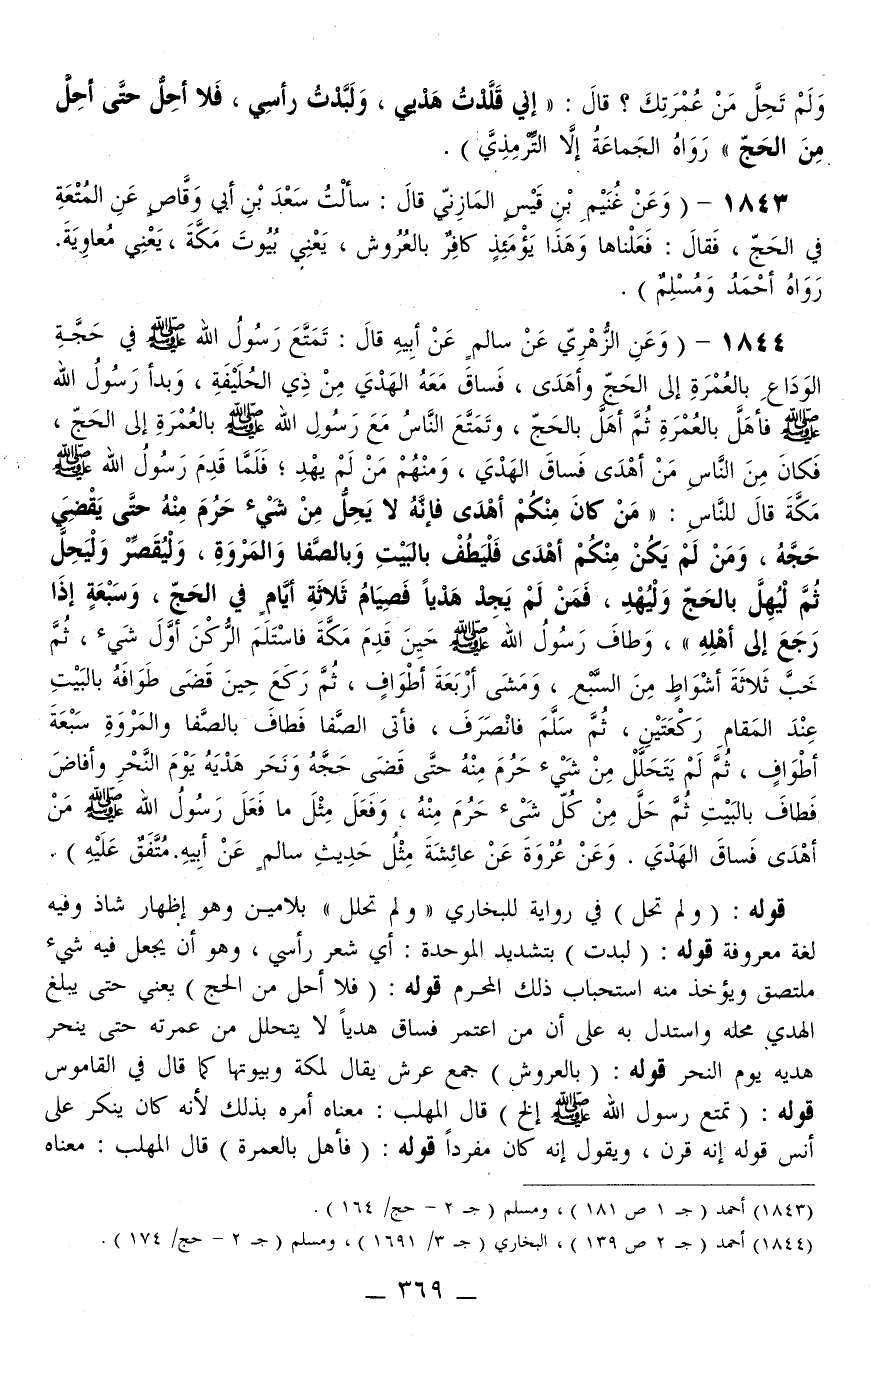 وَلَمْ تَحِلَّ مَنْ عُمْرَتِكَ ؟ قالَ : « إني قَلَّدْتُ هَدْيي ، وَلَبَّدْتُ رأسِي ، فَلا أحِلُّ حتَّى أحِلَّ
مِنَ الحَجّ » رَوَاهُ الجَماعَةُ إلَّا التِّرْمِذِيَّ ) .
١٨٤٣ – ( وَعَنْ غُنَيْمِ بْنِ قَيْسٍ المَازِنيّ قالَ : سألْتُ سَعْدَ بْنِ أبي وَقَّاصٍ عَنِ المُتْعَةِ
في الحَجّ ، فَقالَ : فَعَلْناها وَهَذَا يَوْمَئِذٍ كافِرٌ بالعُرُوش ، يَعْنِي بُيُوتَ مَكَّةَ ، يَعْنِي مُعاوِيَةَ.
رَوَاهُ أحْمَدُ وَمُسْلِمٌ ) .
١٨٤٤ – ( وَعَنِ الزُّهْرِيّ عَنْ سالمٍ عَنْ أبيهِ قالَ : تَمَتَّعَ رَسُولُ الله ﷺ في حَجَّةِ
الوَدَاعِ بالعُمْرَةِ إلى الحَجّ وأهْدَى ، فَساقَ مَعَهُ الهَدْيَ مِنْ ذِي الحُلَيْفَةِ ، وَبدأ رَسُولُ الله
ﷺ فأهَلَّ بالعُمْرَةِ ثُمَّ أهَلَّ بالحَجّ ، وتَمَتَّعَ النَّاسُ مَعَ رَسُولِ الله ﷺ بالعُمْرَةِ إلى الحَجّ ،
فَكانَ مِنَ النَّاسِ مَنْ أهْدَى فَساقَ الهَدْيَ ، وَمنْهُمْ مَنْ لَمْ يهْدِ ؛ فَلَمَّا قَدِمَ رَسُولُ الله ﷺ
مَكَّةَ قالَ للنَّاسِ : « مَنْ كانَ مِنْكُمْ أهْدَى فإنَّهُ لا يَحِلُّ مِنْ شَيْءٍ حَرُمَ مِنْهُ حتَّى يَقْضِيَ
حَجَّهُ ، وَمَنْ لَمْ يَكُنْ مِنْكُمْ أهْدَى فَلْيَطُفْ بالبَيْتِ وَبالصَّفا وَالمَرْوَةِ ، وَلْيُقَصِّرْ وَلْيَحِلَّ
ثُمَّ لْيُهِلَّ بالحَجّ وَلْيُهْدِ ، فَمَنْ لَمْ يَجِدْ هَدْياً فَصِيَامُ ثَلاثَةِ أيَّامٍ في الحَجّ ، وَسَبْعَةٍ إذَا
رَجَعَ إلى أهْلِهِ » ، وَطافَ رَسُولُ الله ﷺ حَينَ قَدِمَ مَكَّةَ فاسْتَلَمَ الرُّكْنَ أوَّلَ شَيْءٍ ، ثُمَّ
خَبَّ ثَلاثَةَ أشْوَاطٍ مِنَ السَّبْعِ ، وَمَشَى أرْبَعَةَ أطْوَافٍ ، ثُمَّ رَكَعَ حِينَ قَضَى طَوَافَهُ بالبَيْتِ
عِنْدَ المَقامِ رَكْعَتَيْنِ ، ثُمَّ سَلَّمَ فانْصَرَفَ ، فأتى الصَّفا فَطافَ بالصَّفا والمَرْوَةِ سَبْعَةَ
أطْوَافٍ ، ثُمَّ لَمْ يَتَحَلَّلْ مِنْ شَيْءٍ حَرُمَ مِنْهُ حتَّى قَضَى حَجَّهُ وَنَحَر هَدْيَهُ يَوْمَ النَّحْرِ وأفاضَ
فَطافَ بالبَيْتِ ثُمَّ حَلَّ مِنْ كُلّ شَيْءٍ حَرُمَ مِنْهُ ، وَفَعَلَ مِثْلَ ما فَعَلَ رَسُولُ الله ﷺ مَنْ
أهْدَى فَساقَ الهَدْيَ . وَعَنْ عُرْوَةَ عَنْ عائِشَةَ مِثْلُ حَدِيثِ سالمٍ عَنْ أبِيهِ. مُتَّفَقٌ عَلَيْهِ ) .
قوله : ( ولم تحل ) في رواية للبخاري « ولم تحلل » بلامين وهو إظهار شاذ وفيه
لغة معروفة قوله : ( لبدت ) بتشديد الموحدة : أي شعر رأسي ، وهو أن يجعل فيه شيء
ملتصق ويؤخذ منه استحباب ذلك المحرم قوله : ( فلا أحل من الحج ) يعني حتى يبلغ
الهدي محله واستدل به على أن من اعتمر فساق هدياً لا يتحلل من عمرته حتى ينحر
هديه يوم النحر قوله : ( بالعروش ) جمع عرش يقال لمكة وبيوتها كما قال في القاموس
قوله : ( تمتع رسول الله ﷺ إلخ ) قال المهلب : معناه أمره بذلك لأنه كان ينكر على
أنس قوله إنه قرن ، ويقول إنه كان مفرداً قوله : ( فأهل بالعمرة ) قال المهلب : معناه
(١٨٤٣) أحمد ( جـ ١ ص ١٨١ ) ، ومسلم ( جـ ٢ – حج/ ١٦٤ ) .
(١٨٤٤) أحمد ( جـ ٢ ص ١٣٩ ) ، البخاري ( جـ ٣/ ١٦٩١ ) ، ومسلم ( جـ ٢ – حج/ ١٧٤ ) .
– ٣٦٩ –